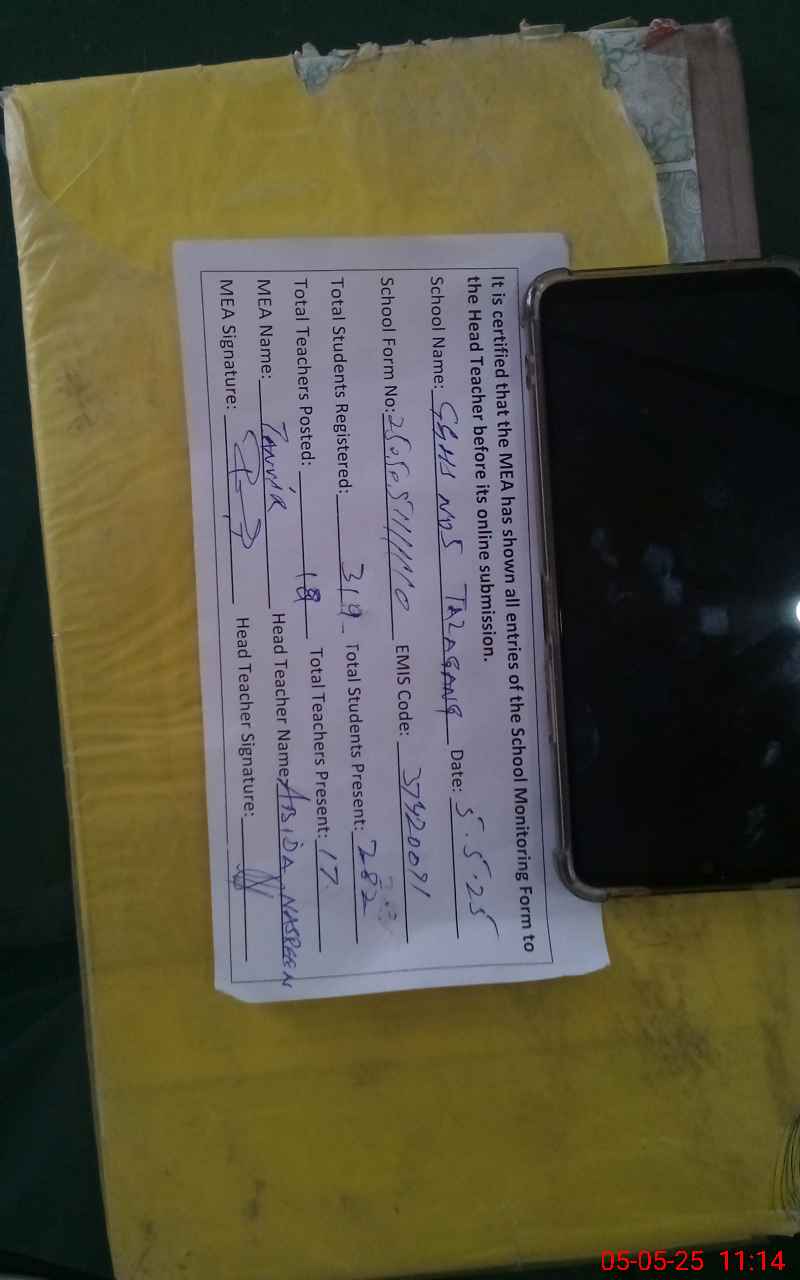 It is certified that the MEA has shown all entries of the School Monitoring Form to
the Head Teacher before its online submission.
School Name: GGHS NO5 TALAGANG Date: 5.5.25
School Form No: EMIS Code: 37420091
Total Students Registered: 319 Total Students Present: 282
Total Teachers Posted: 18 Total Teachers Present: 17
MEA Name: Tanvir Head Teacher Name: ABIDA NASREEN
MEA Signature: Head Teacher Signature:
05-05-25 11:14